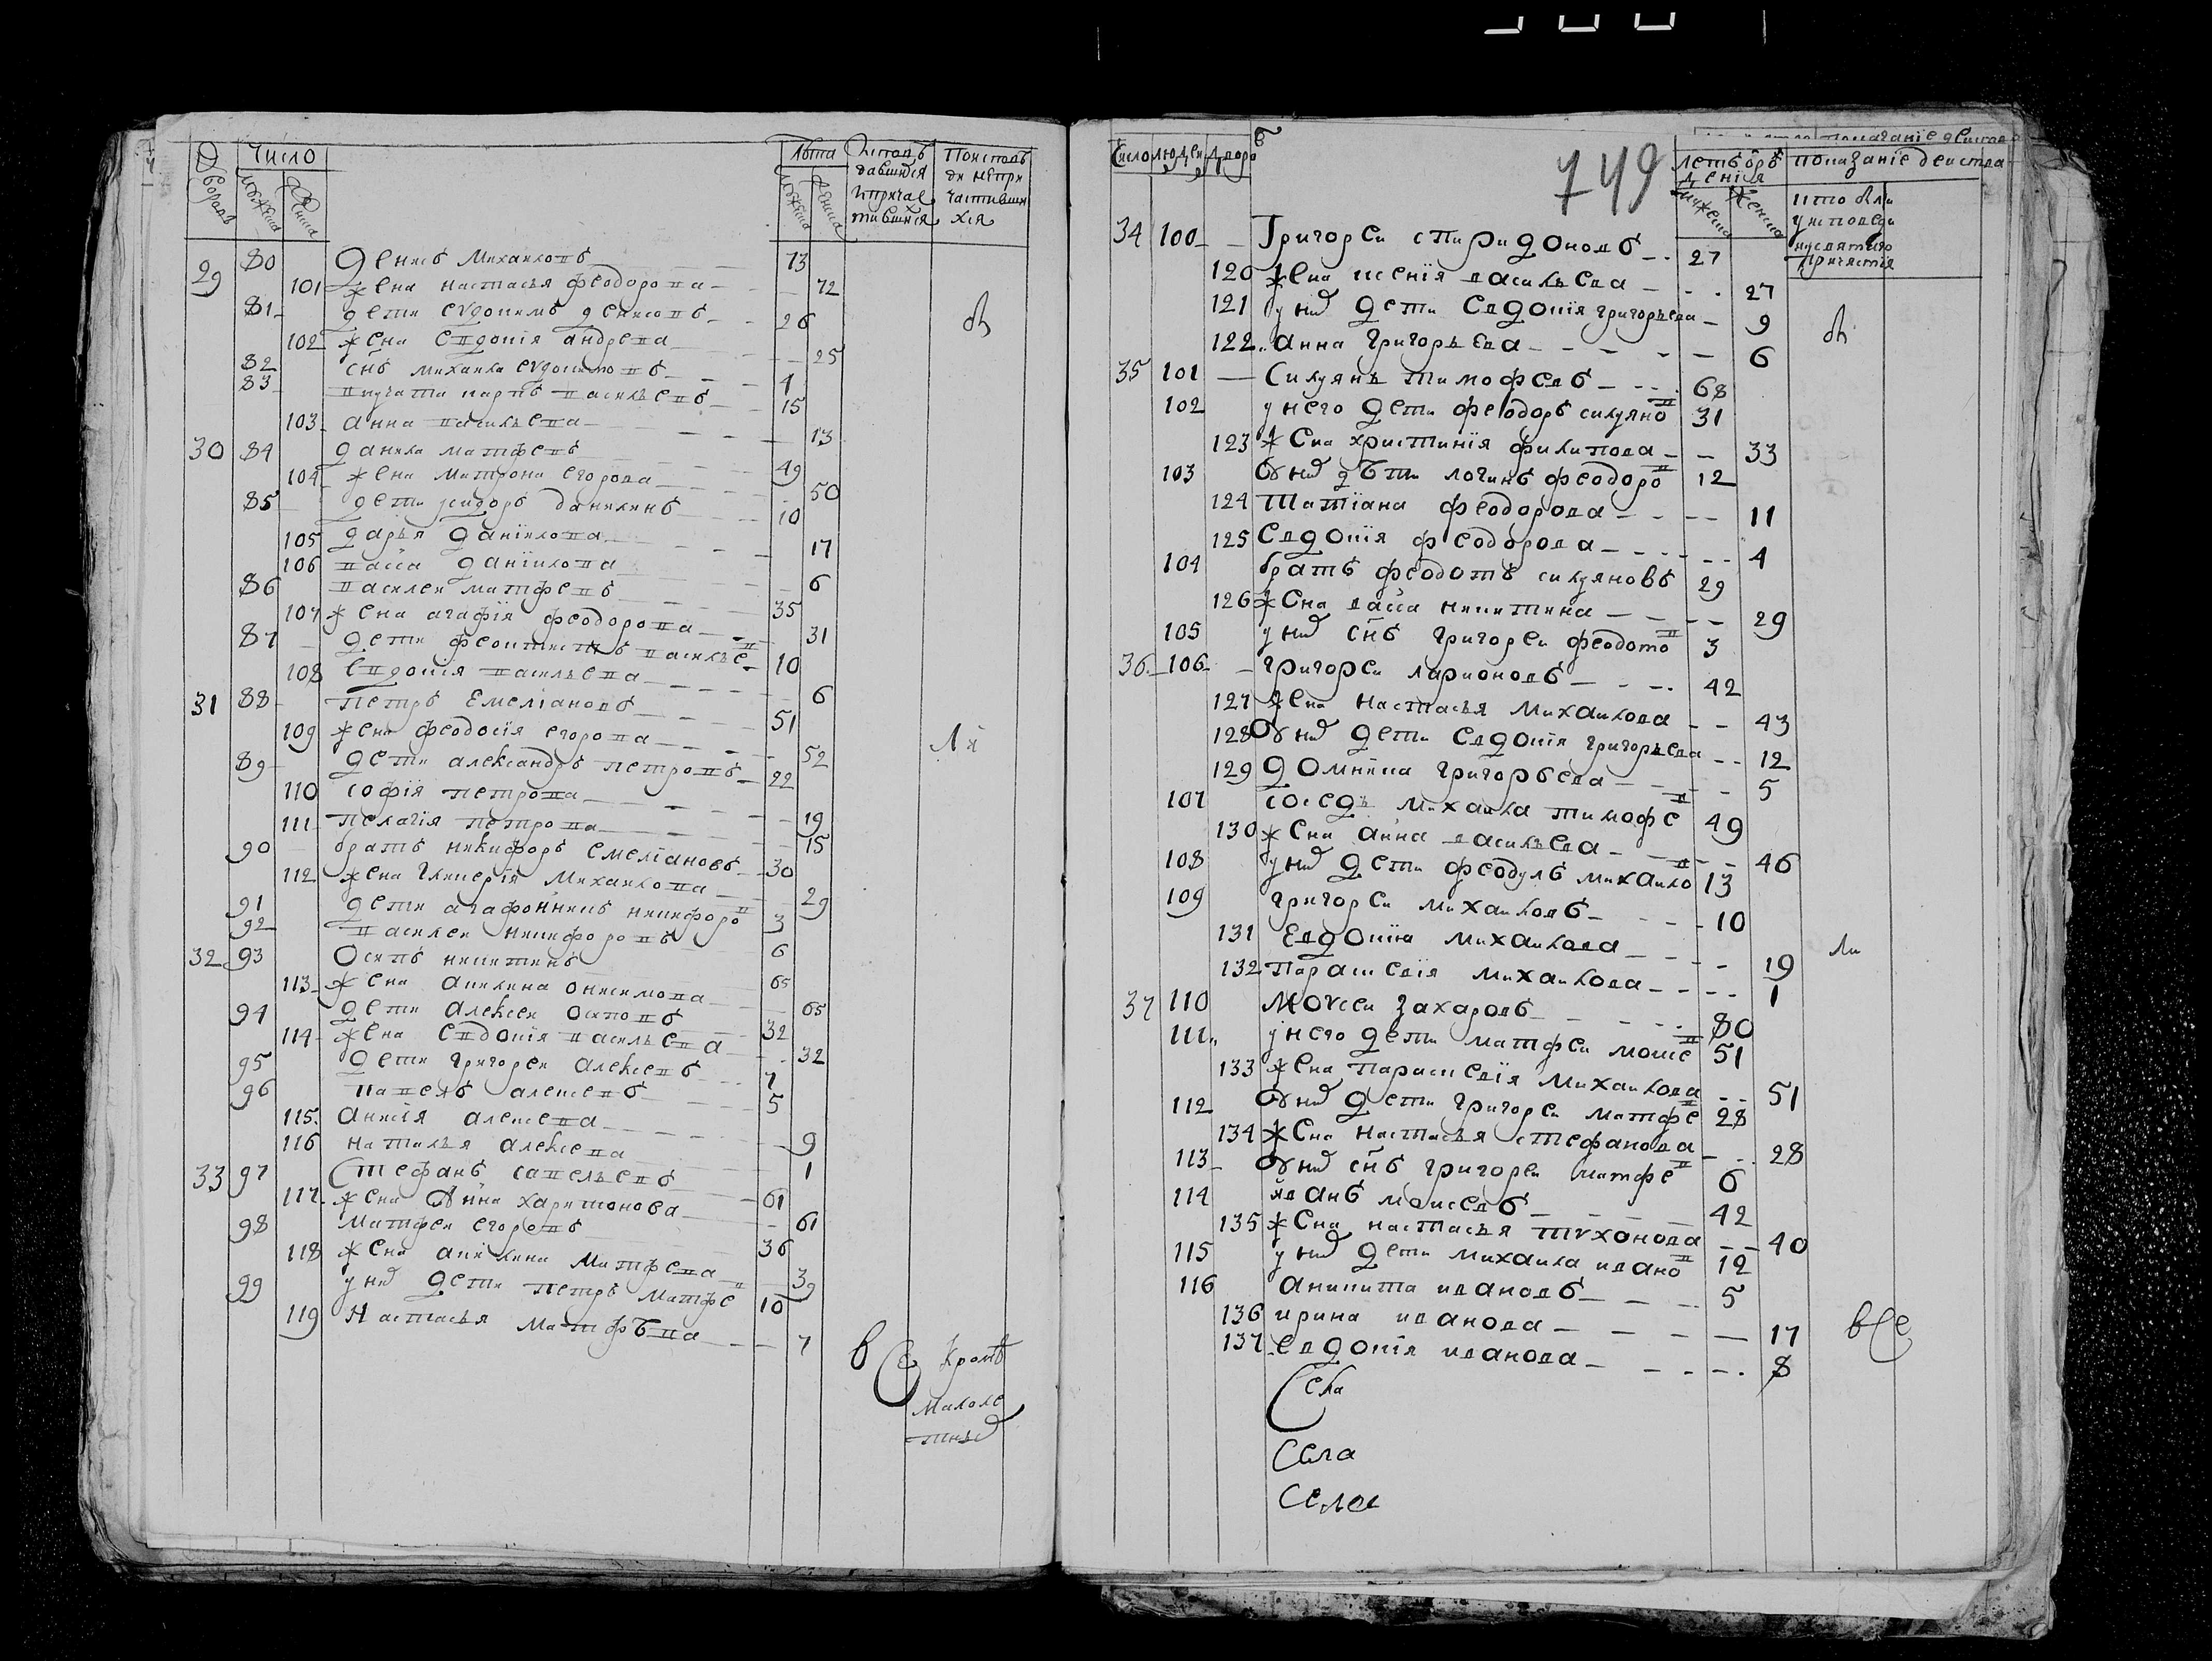 749
Дворовъ Число Лета Исповѣдавшихся и причастившихся По исповеди не причастившихся
мужеска женска мужеска женска
29 80 Денисъ Михаиловъ 73
101 жена настасья феодорова 72
81 дети евдокимъ денисовъ 26
102 жена евдокія андрева 25
82 снъ михаила евдокимовъ 1
83 внучата карпъ васильевъ 15
103 анна васильева 13
30 84 данила матфеевъ 49
104 жена матрона егорова 50
85 дети сидоръ данилинъ 10
105 дарья данілова 17
106 васса данілова 6
86 василеи матфевъ 35
107 жена агафія феодорова 31
87 дети феоктистъ василье в 10
108 евдокія васильева 6
31 88 петръ Емеліановъ 51
109 жена феодосія егорова 52
89 дети александръ петровъ 22
110 софія петрова 19
111 пелагія петрова 15
90 братъ никифоръ емеліановъ 30
112 жена гликерія михаилова 29
91 дети агафонникъ никифоро в 3
92 василеи никифоровъ 6
32 93 Осипъ никитинъ 65
113 жена акилина онисимова 65
94 дети алексеи осиповъ 32
114 жена евдокія васильева 32
95 дети григореи алексевъ 7
96 павелъ алексевъ 5
115 анисія алексева 9
116 наталья алексева 1
33 97 Стефанъ савельевъ 61
117 жена Анна харитонова 61
98 матфеи егоровъ 36
118 жена акилина матфева 39
99 у них дети петръ матфе в 10
119 Настасья матфѣва 7
все кромѣ
малоле
тных
Число людеи Дворо в летъ рождения показание деиства
мужеска женска кто был у исповеди и у святаго причастія
34 100 Григореи спиридоновъ 27
120 жена ксенія васильева 27
121 у них дети Евдокія григорьева 9
122 анна григорьева 6
35 101 Силуянъ тимофевъ 68
102 у него дети феодоръ силуяно в 31
123 жена христинія филипова 33
103 у них дѣти логинъ феодоро в 12
124 татіана феодорова 11
125 Евдокія феодорова 4
104 братъ феодотъ силуяновъ 29
126 жена васса никитина 29
105 у них снъ григореи феодото в 3
36 106 григореи ларионовъ 42
127 жена настасья михаилова 43
128 у них дети Евдокія григорьева 12
129 домника григорьева 5
107 соседъ михаила тимофе в 49
130 жена анна васильева 46
108 у них дети феодулъ михаило в 13
109 григореи михаиловъ 10
131 Евдокия михаилова 19
132 параскевія михаилова 1
37 110 Моисеи захаровъ 80
111 у него дети матфеи моисе в 51
133 жена параскевія михаилова 51
112 у них дети григореи матфе в 28
134 жена настасья стефанова 28
113 у них снъ григореи матфе в 6
114 иванъ моисевъ 42
135 жена настасья тихонова 40
115 у них дети михаила ивано в 12
116 аникита ивановъ 5
136 ирина иванова 17
137 евдокія иванова 8
все
Села
Села
Села